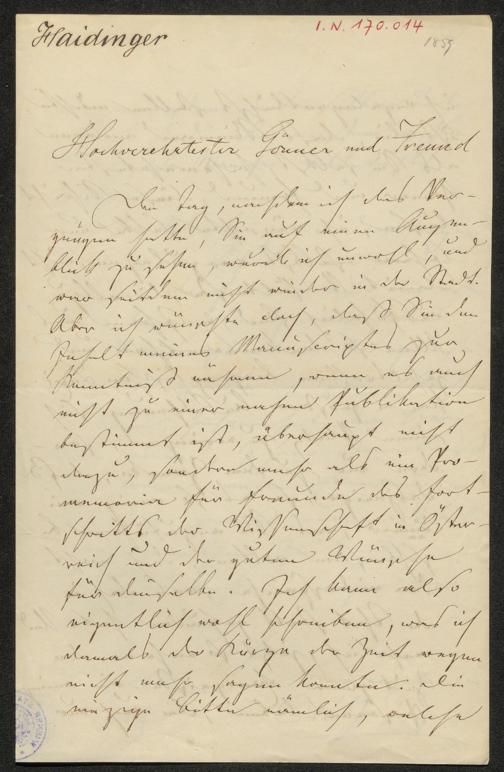 Haidinger
I.N. 170.014
1859
Hochverehrtester Gönner und Freund
Den Tag, nachdem ich das Ver-
gnügen hatte, Sie auf einen Augen-
blick zu sehen, wurde ich unwohl, und
war seitdem nicht wieder in der Stadt.
Aber ich wünschte doch, daß Sie den
Inhalt meines Manuscriptes zur
Kenntniß nähmen, wenn es auch
nicht zu einer nahen Publikation
bestimmt ist, überhaupt nicht
dazu, sondern mehr als ein Pro-
memoria für Freunde des Fort-
schritts der Wissenschaft in Öster-
reich und der guten Wünsche
für dieselbe. Ich kann also
eigentlich wohl schreiben, was ich
damals der Kürze der Zeit wegen
nicht mehr sagen konnte. Die
einzige Bitte nämlich, welche